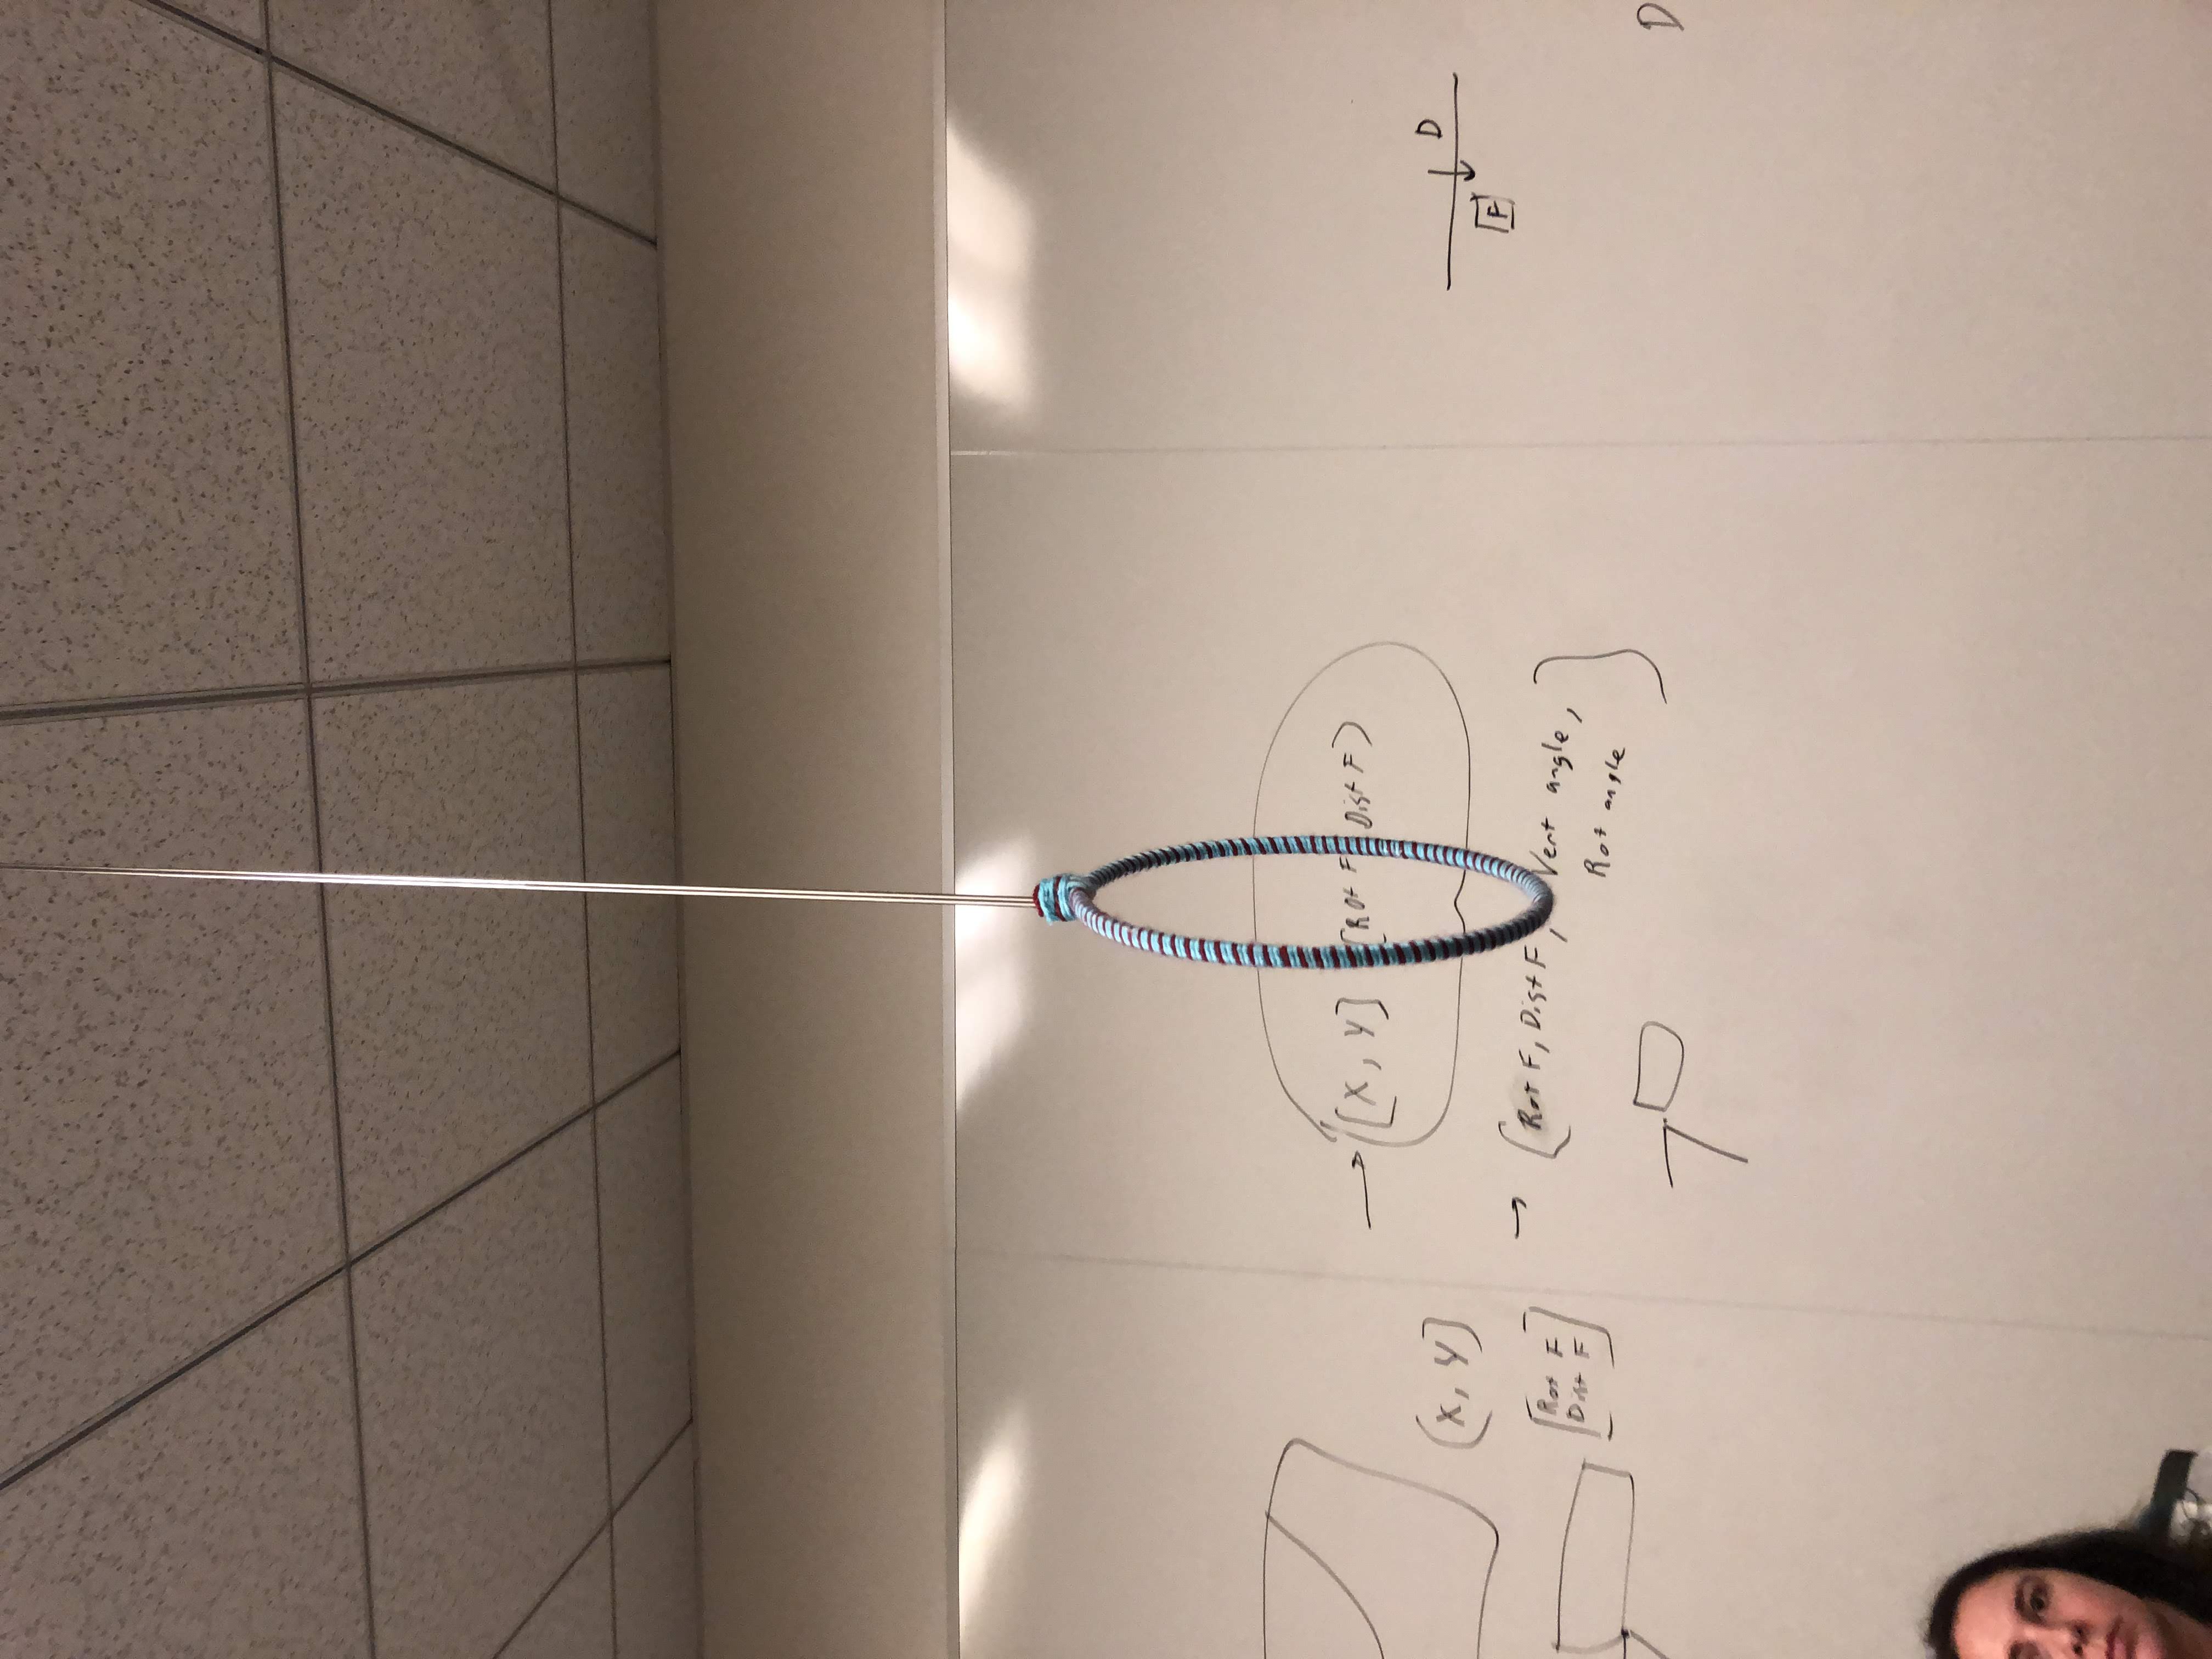 (X, Y]
[Rot F
Dist F]
→ [X, Y] [Rot F, Dist F)
→ [Rot F, Dist F, Vert angle,
Rot angle]
D
F
D